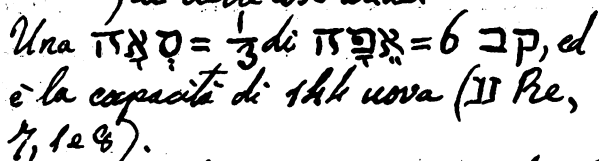 Una סְאָה = 1/3 di אֵפָה = 6 קב, ed
è la capacità di 144 uova (II Re,
7, 1 e 8).